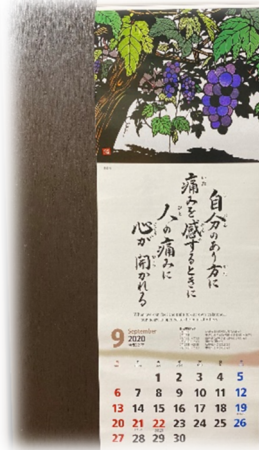 自分のあり方に
痛みを感ずるときに
人の痛みに
心が開かれる
9 September
2020
1 2 3 4 5
6 7 8 9 10 11 12
13 14 15 16 17 18 19
20 21 22 23 24 25 26
27 28 29 30